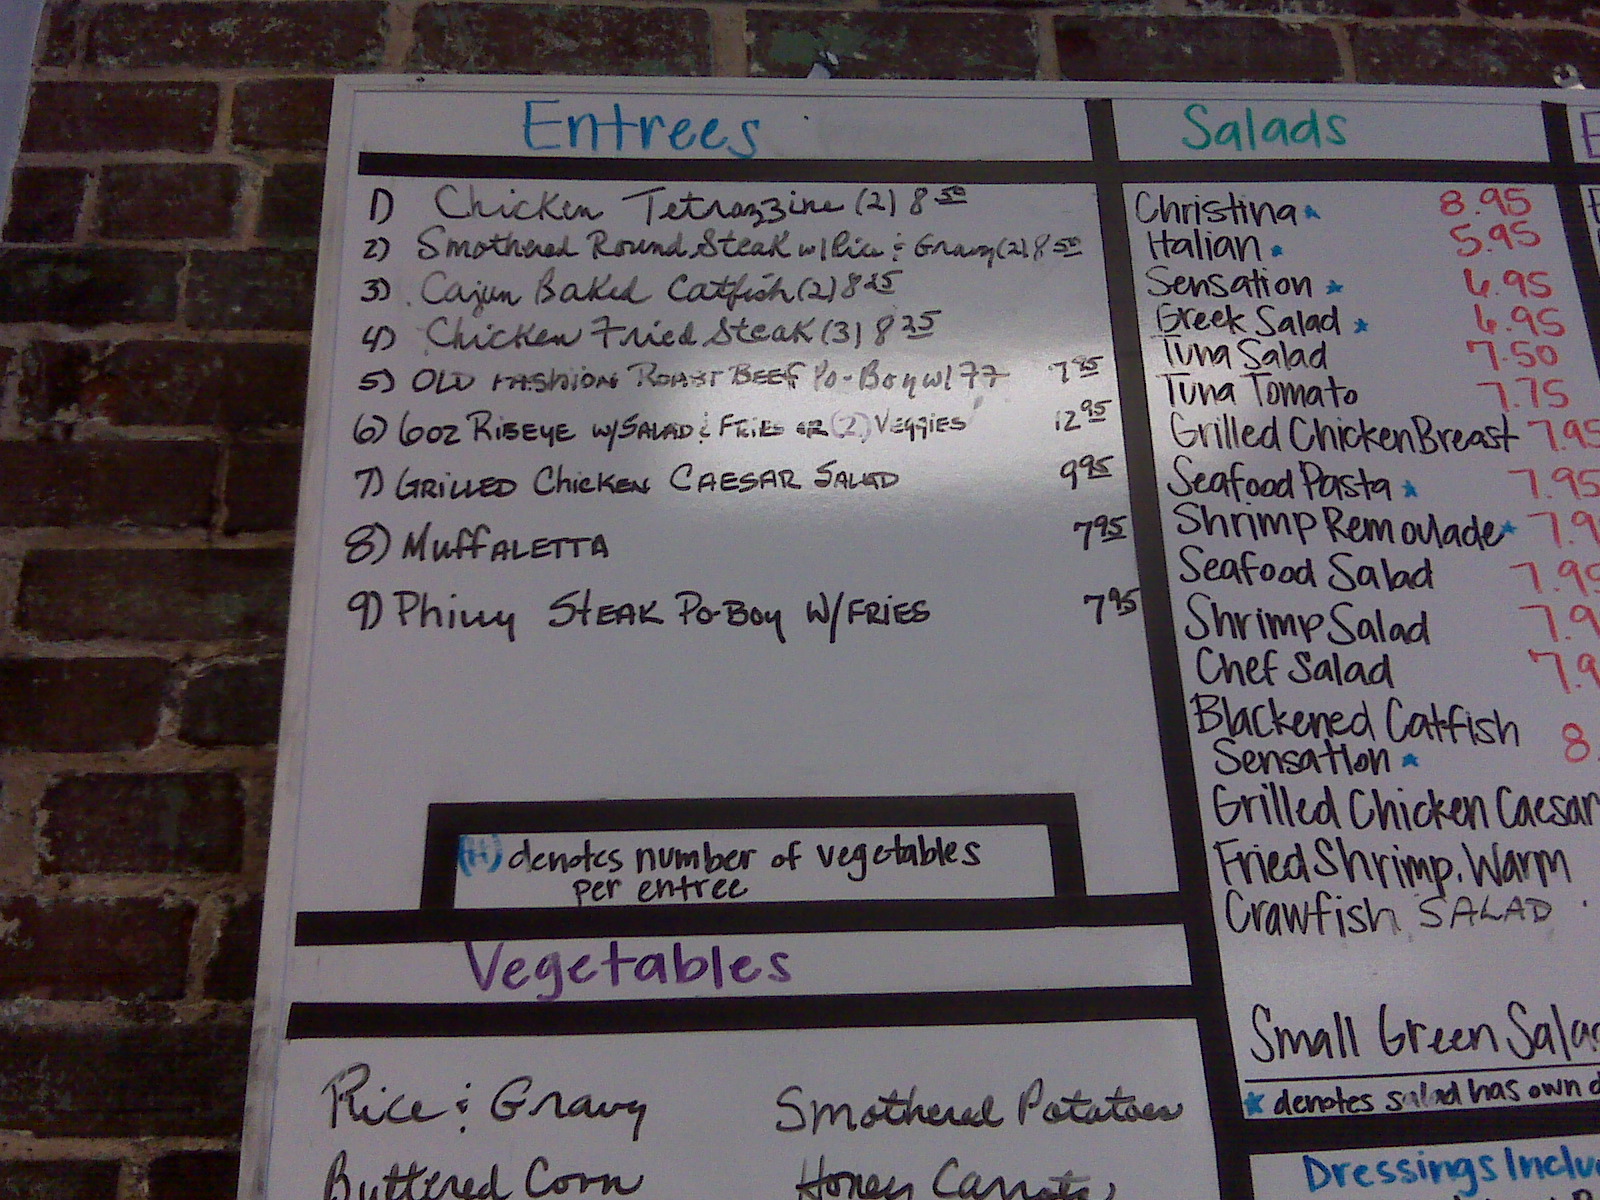 Entrees
1) Chicken Tetrazzine (2) 8 50
2) Smothered Round Steak w/ Rice & Gravy (2) 8 50
3) Cajun Baked Catfish (2) 8 25
4) Chicken Fried Steak (3) 8 25
5) OLD FASHION ROAST BEEF Po-Boy w/ FF 7 95
6) 6oz RIBEYE w/SALAD & FRIES OR (2) VEGGIES 12 95
7) GRILLED Chicken CAESAR SALAD 9 95
8) MuffALETTA 7 95
9) Philly STEAK Po-Boy W/FRIES 7 95
(#) denotes number of vegetables
per entree
Vegetables
Rice & Gravy Smothered Potatoes
Buttered Corn Honey Carrots
Salads
Christina 8.95
Italian 5.95
Sensation 6.95
Greek Salad 6.95
Tuna Salad 7.50
Tuna Tomato 7.75
Grilled Chicken Breast 7.95
Seafood Pasta 7.95
Shrimp Remoulade 7.9
Seafood Salad 7.95
Shrimp Salad 7.9
Chef Salad 7.9
Blackened Catfish
Sensation 8.
Grilled Chicken Caesar
Fried Shrimp, Warm
Crawfish SALAD
Small Green Salad
★ denotes salad has own d
Dressings Inclu